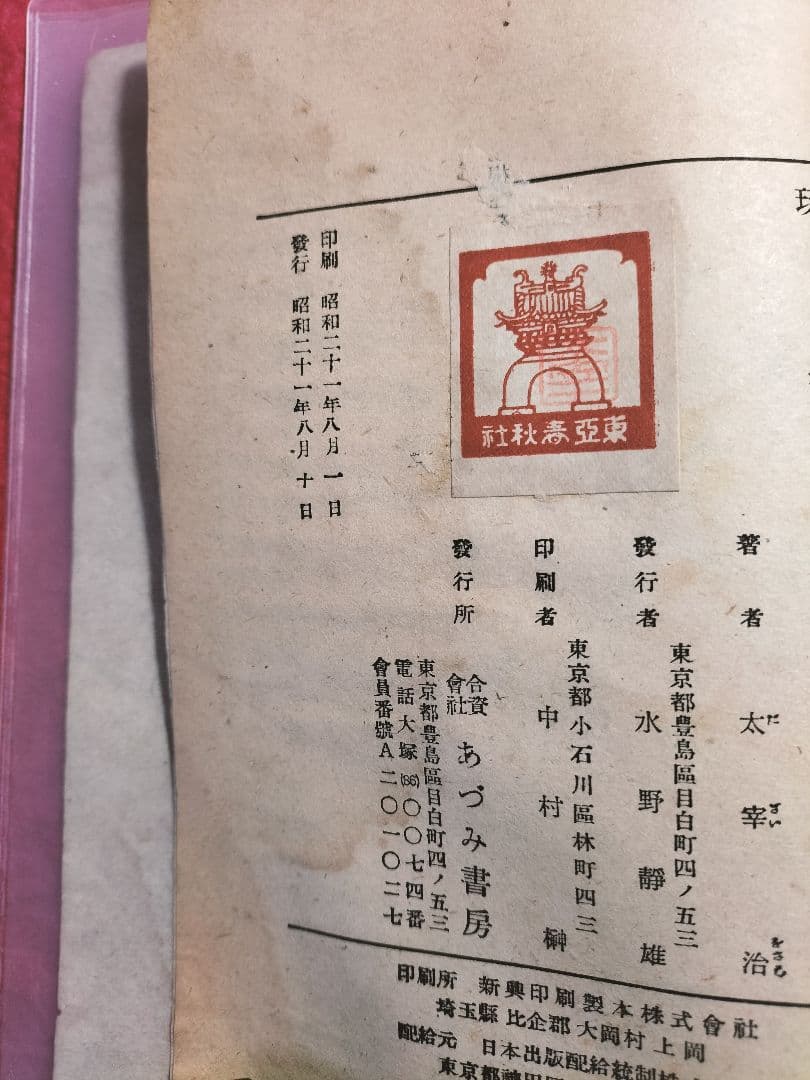 著者 太宰治
だざいをさむ
東京都豊島區目白町四ノ五三
發行者 水野靜雄
東京都小石川區林町四三
印刷者 中村榊
發行所 合資會社 あづみ書房
東京都豊島區目白町四ノ五三
電話大塚(86)〇〇七四番
會員番號A二〇一〇二七
東亞春秋社
印刷 昭和二十一年八月一日
發行 昭和二十一年八月十日
印刷所 新興印刷製本株式會社
埼玉縣比企郡大岡村上岡
配給元 日本出版配給統制株
東京都